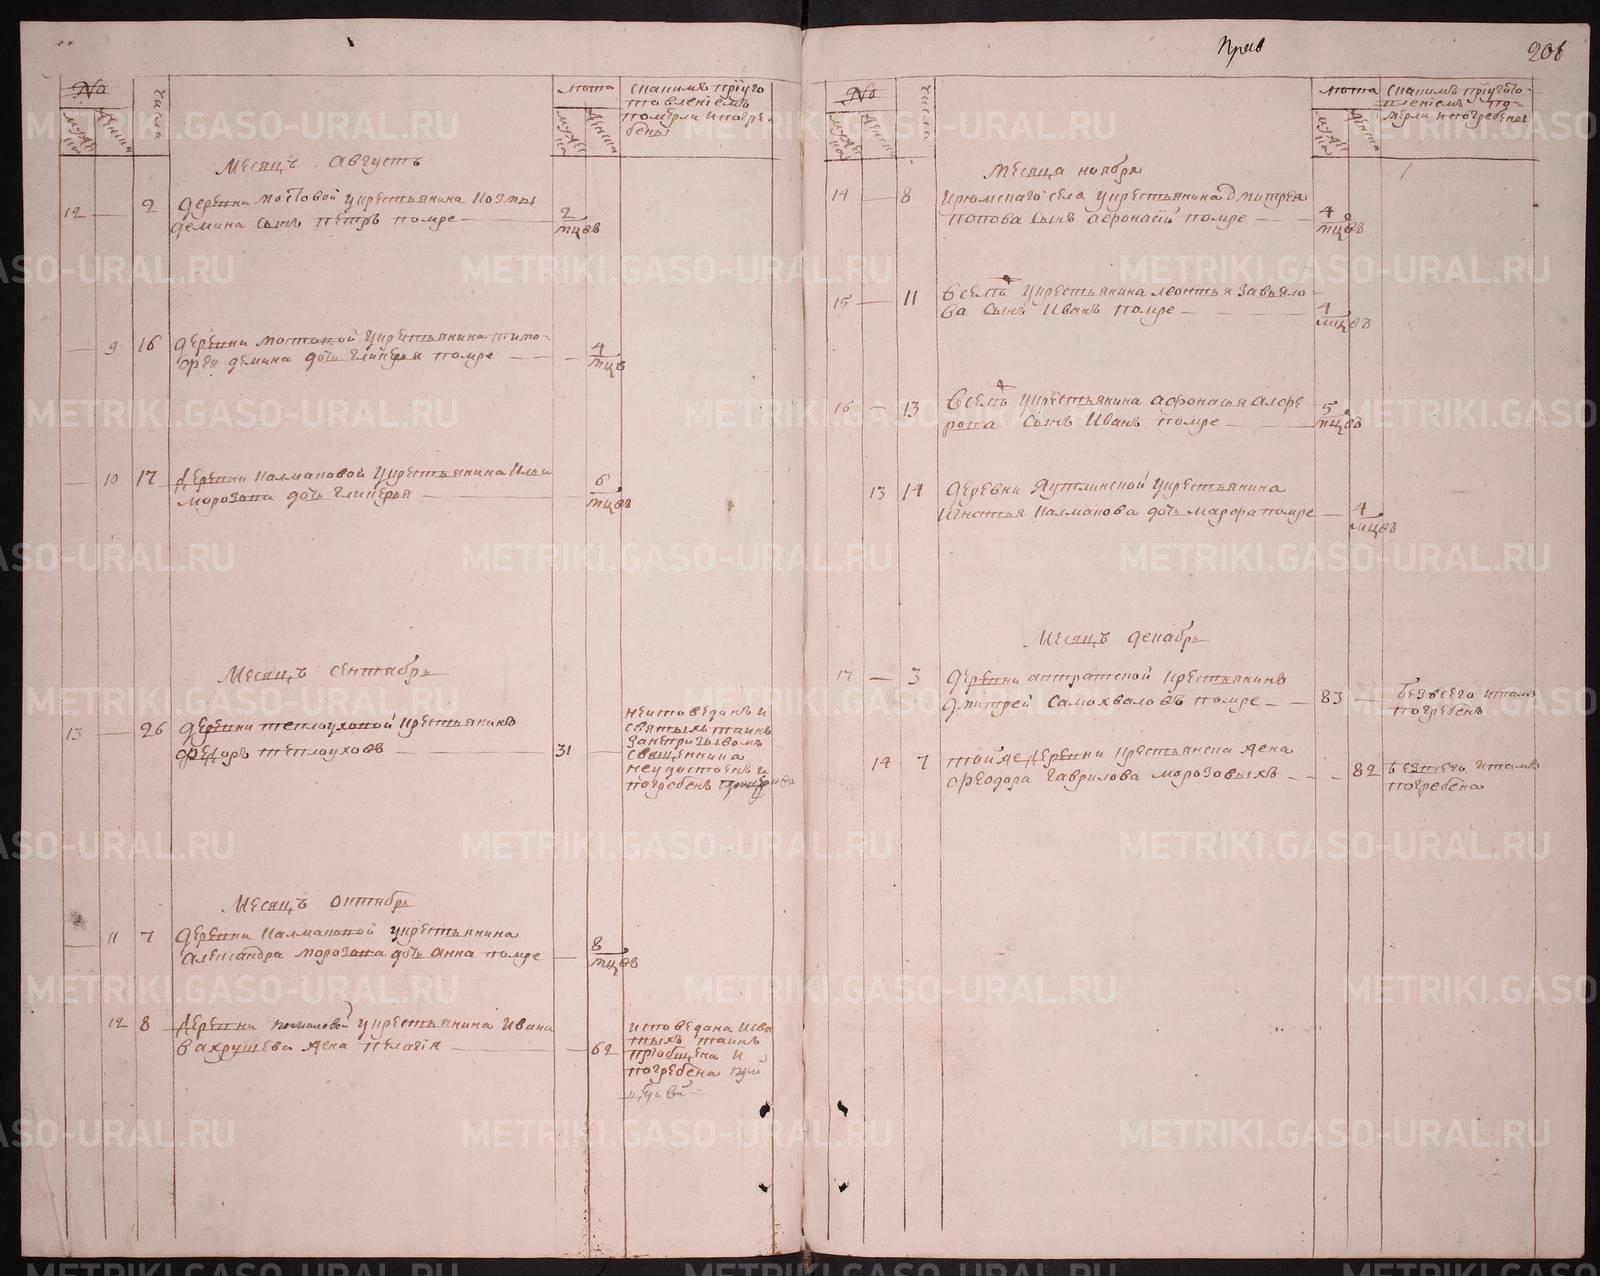 No
мужска
женска
числа
лѣта
мужска
женска
скакимъ приуго
товлениемъ
померли ипогре-
бены
Месяцъ Августъ
12 — 2 деревни мостовой укрестьянина Козмы
демина сынъ петръ помре — 2
мцовъ
— 9 16 деревни мостовой укрестьянина тимо-
фея демина дочь гликерья помре — 4
мцв
— 10 17 деревни калмаковой укрестьянина Ильи
морозова дочь гликерья — 6
мцовъ
Месяцъ сентябрь
13 — 26 деревни теплоуховой крестьянинъ
федоръ теплоуховъ — 31 —
неисповеданъ и
святыхъ таинъ
занепризывомъ
священника
неудостоенъ и
погребенъ
Месяцъ октябрь
11 7 деревни калмаковой укрестьянина
александра морозова дочь анна помре — 8
мцовъ
12 8 деревни калмаковой укрестьянина Ивана
вахрушева жена пелагия — 62
исповедана исвя
тыхъ таинъ
приобщена и
погребена при
церкви
прав
206
No
мужска
женска
числа
лѣта
мужска
женска
скакимъ приугото-
влениемъ по-
мерли ипогребены
Месяца ноября
14 — 8 ирюмскаго села укрестьянина дмитрея
попова сынъ афонасий помре — 4
мцовъ
15 — 11 Вселѣ укрестьянина леонтья завьяло-
ва сынъ Иванъ помре — 4
мцовъ
16 — 13 Вселѣ укрестьянина афонасья алфе
рова сынъ Иванъ помре — 5
мцовъ
13 14 деревни Яутлинской укрестьянина
Игнатья калмакова дочь марфа помре — 4
мцовъ
Месяцъ декабрь
17 — 3 деревни антратской крестьянинъ
дмитрей самохваловъ помре — 83
безвсего итакъ
погребенъ
14 7 тойже деревни крестьянска жена
феодора гаврилова морозовыхъ — 82
безвсего итакъ
погребена
METRIKI.GASO-URAL.RU